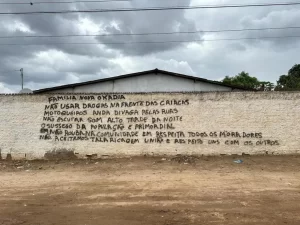 FAMILIA NOVA OKAIDA
NÃO USAR DROGAS NA FRENTE DAS CRIANÇAS
MOTOQUEIROS ANDA DIVAGA PELAS RUAS
NÃO ESCUTAR SOM ALTO TARDE DA NOITE
O SUSSEGO DA POPULAÇÃO É PRIMORDIAL
NÃO ROUBA NA COMUNIDADE EM RESPEITA TODOS OS MORADORES
NÃO ACEITAMOS TALARICAGEM UNIÃO E RESPEITO UNS COM OS OUTROS